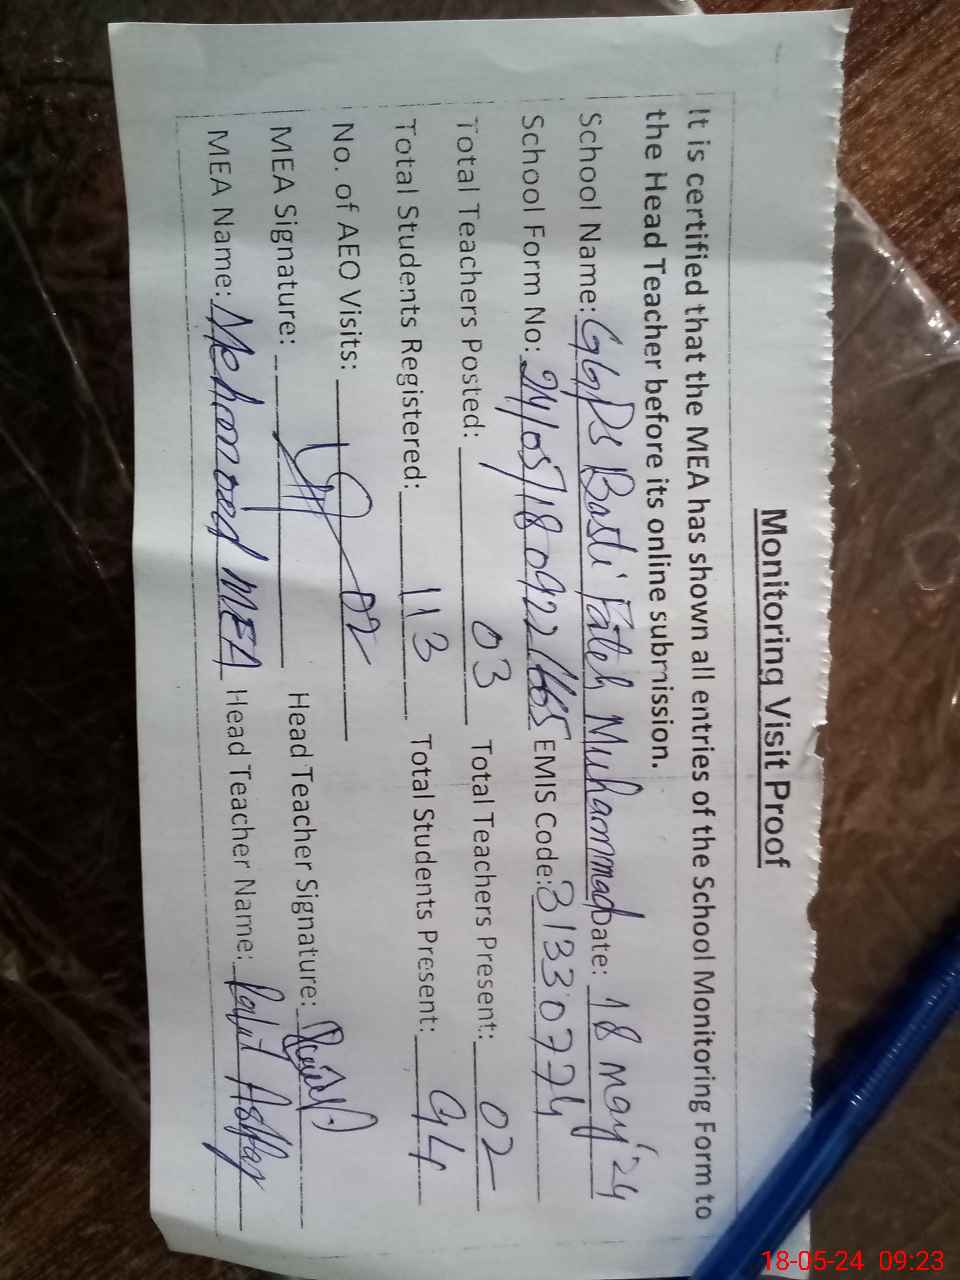 Monitoring Visit Proof
It is certified that the MEA has shown all entries of the School Monitoring Form to
the Head Teacher before its online submission.
School Name: GGPS Basti Fateh Muhammad Date: 18 may'24
School Form No: 24/05/18092 1665 EMIS Code: 31330774
Total Teachers Posted: 03 Total Teachers Present: 02
Total Students Registered: 113 Total Students Present: 94
No. of AEO Visits: 02
MEA Signature: Head Teacher Signature:
MEA Name: MEA Head Teacher Name:
18-05-24 09:23